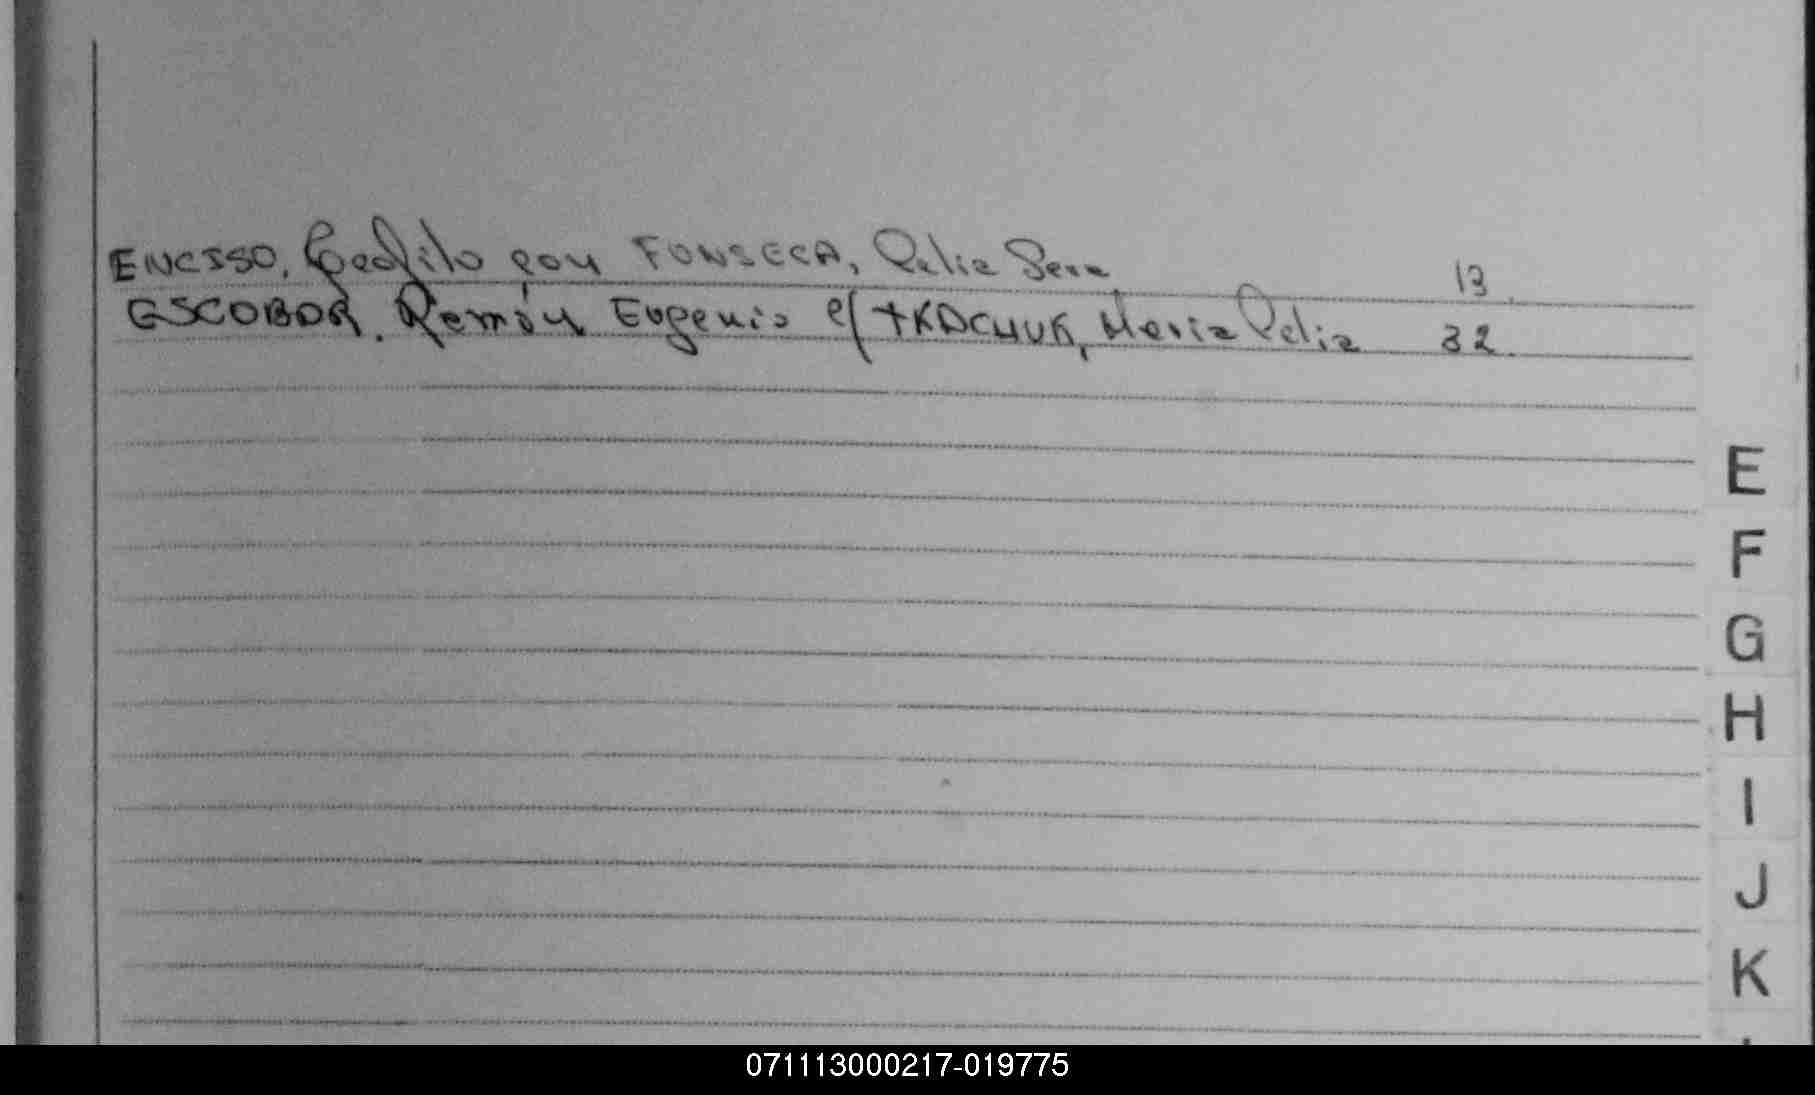 ENCISSO, Teofilo con FONSECA, Sara
ESCOBAR, Ramón Eugenio c/ TKACHUK, Maria Celia 32.
13
E
F
G
H
I
J
K
071113000217-019775